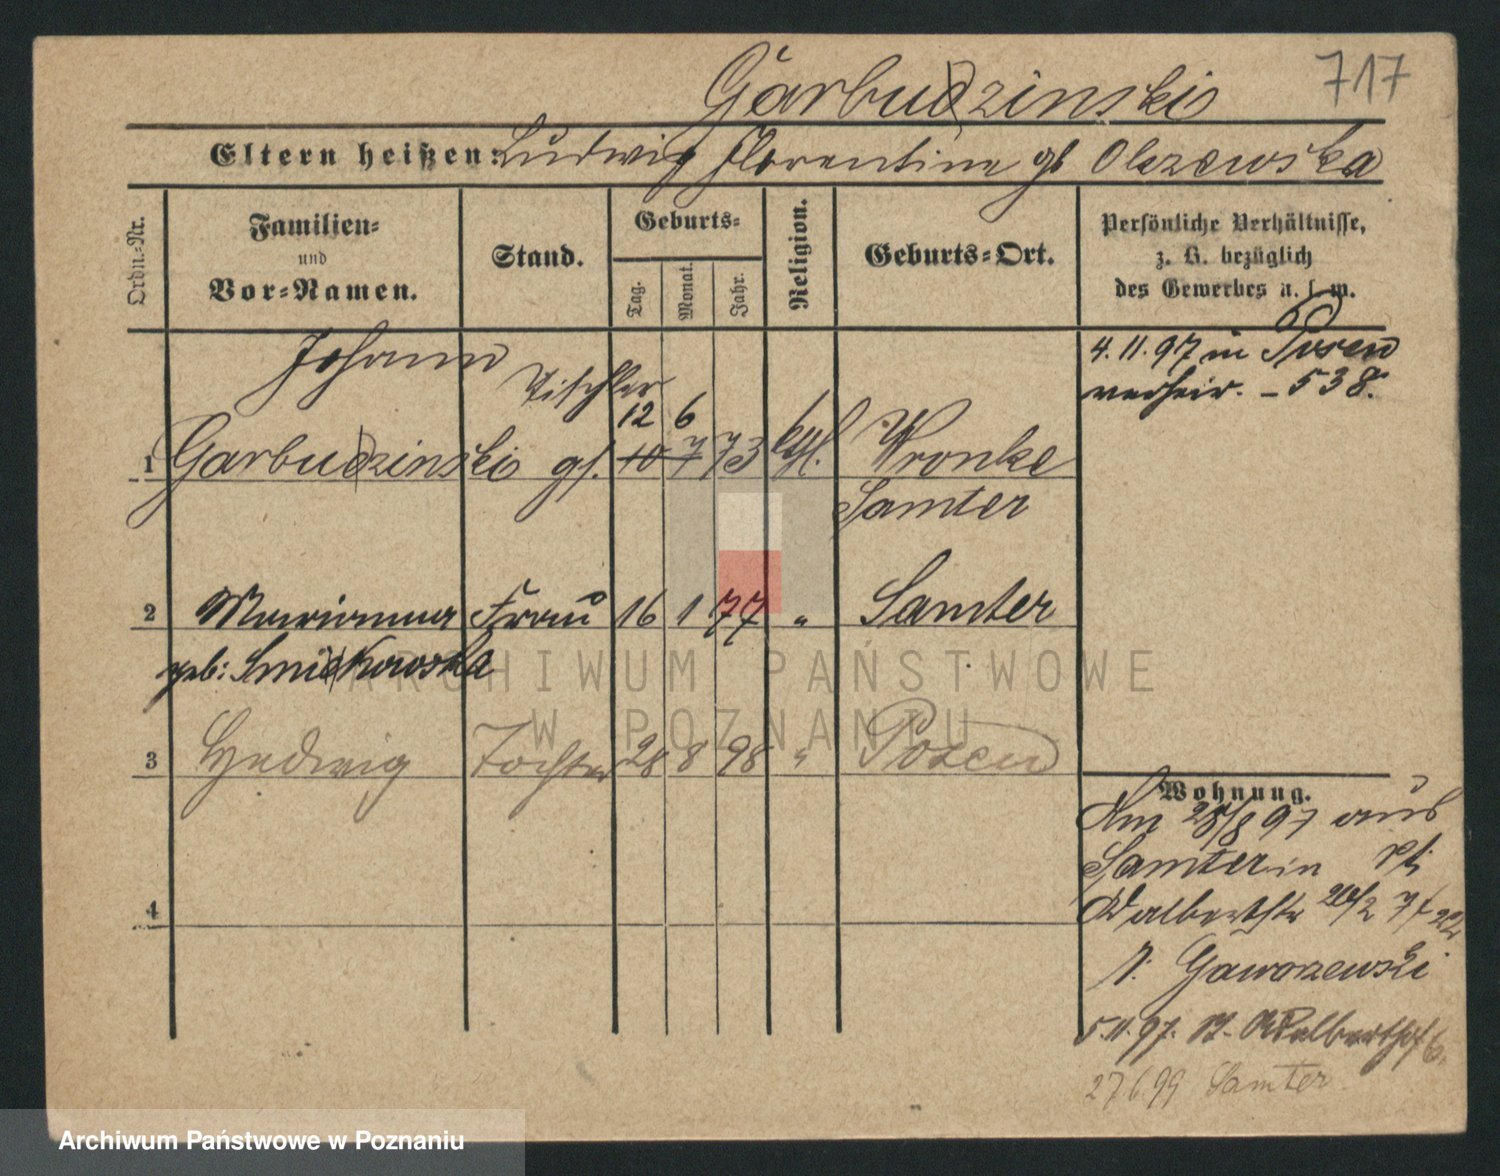 717
Garbudzinski
Eltern heißen: Ludwig Florentine gb Olszewska
Ordn.-Nr.
Familien- und Vor-Namen.
Stand.
Geburts-
Tag. Monat. Jahr.
Religion.
Geburts-Ort.
Persönliche Verhältnisse,
z. B. bezüglich
des Gewerbes u. s. w.
4.11.97 in Posen
verheir. - 538.
Johann Tischler
12 6
1 Garbudzinski gs. 10 7 73 kth. Wronke
Samter
2 Marianna Frau 16 1 77 " Samter
geb: Smiekowska
3 Hedwig Tochter 28 8 98 " Posen
4
Wohnung.
Am 28/8 97 aus
Samter in St.
Adalbertstr
b. Gaworzewski
5.11.97. St. Adalbertstr 6.
27.6.99 Samter.
ARCHIWUM PAŃSTWOWE
W POZNANIU
Archiwum Państwowe w Poznaniu